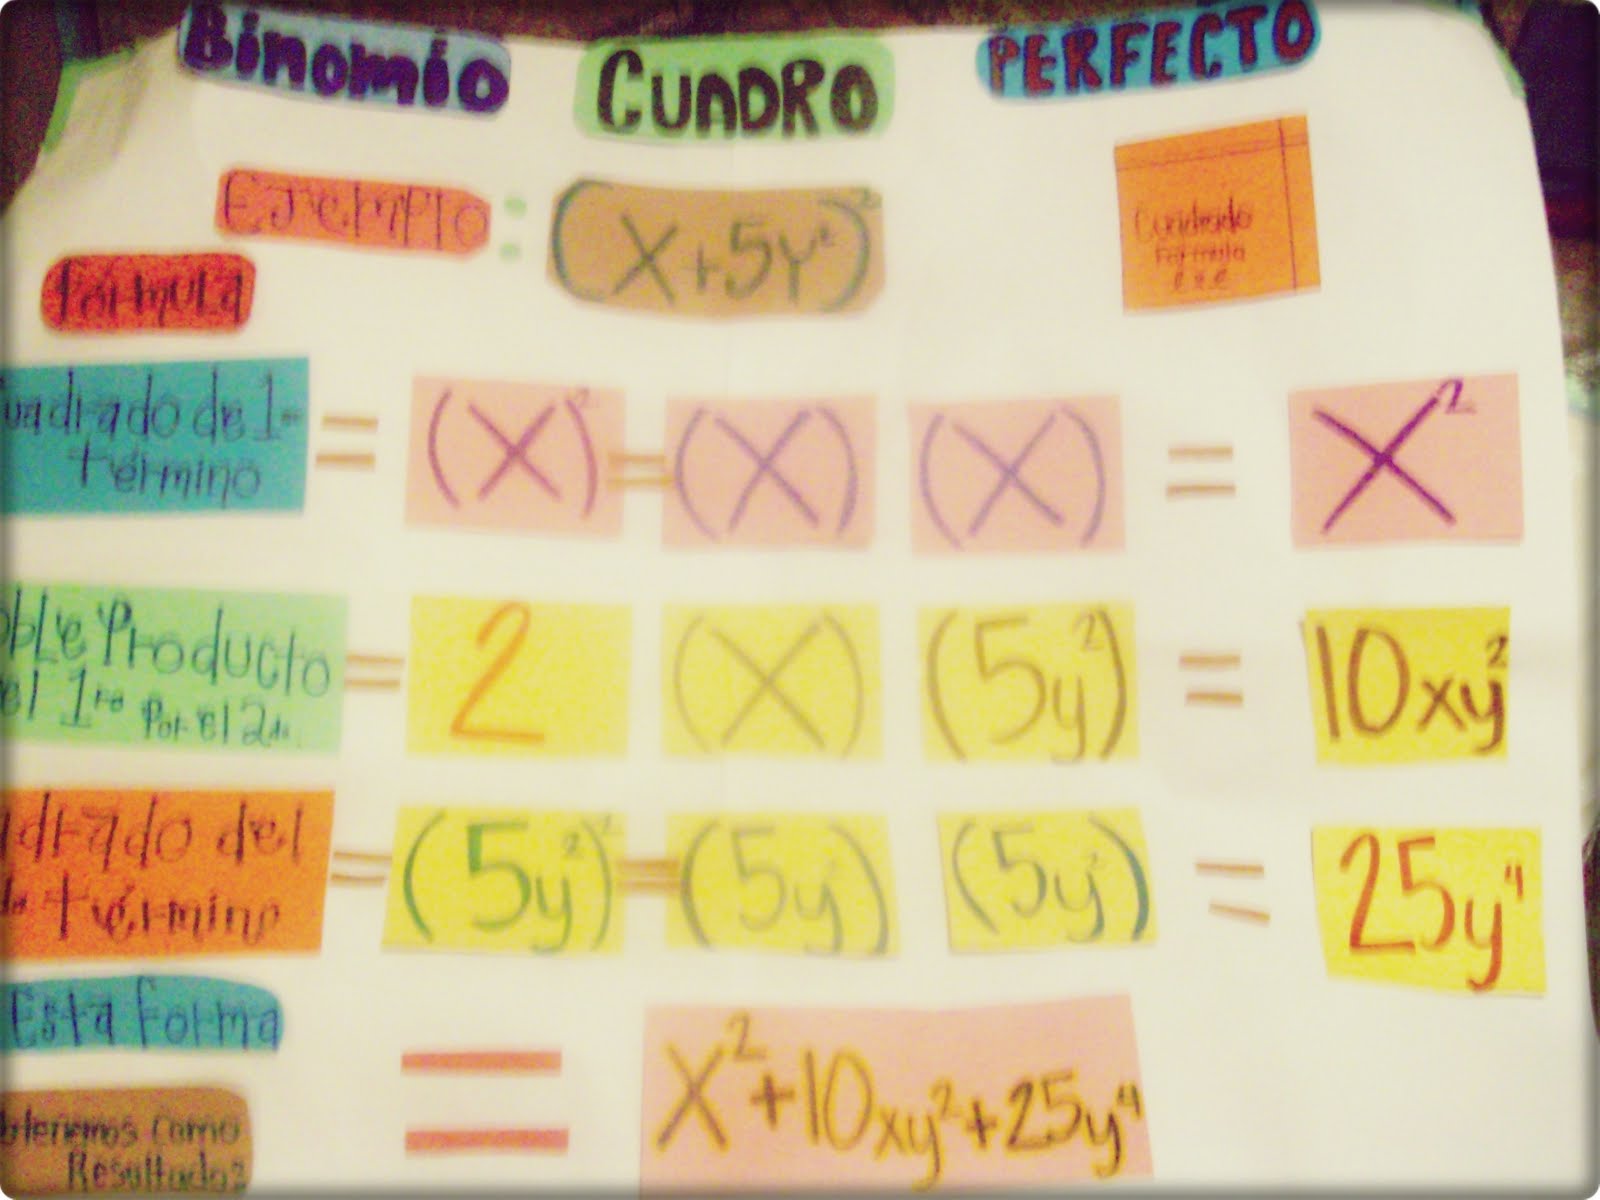 Binomio CUADRO PERFECTO
Ejemplo: (X+5y²)²
Cuadrado
Formula
Fórmula
uadrado de 1er
término
= (X)² = (X) (X) = X²
oble Producto
el 1ro Por el 2do
= 2 (X) (5y²) = 10xy²
adrado del
término
= (5y²)² = (5y) (5y²) = 25y⁴
Esta forma
btenemos como
Resultado:
= X²+10xy²+25y⁴